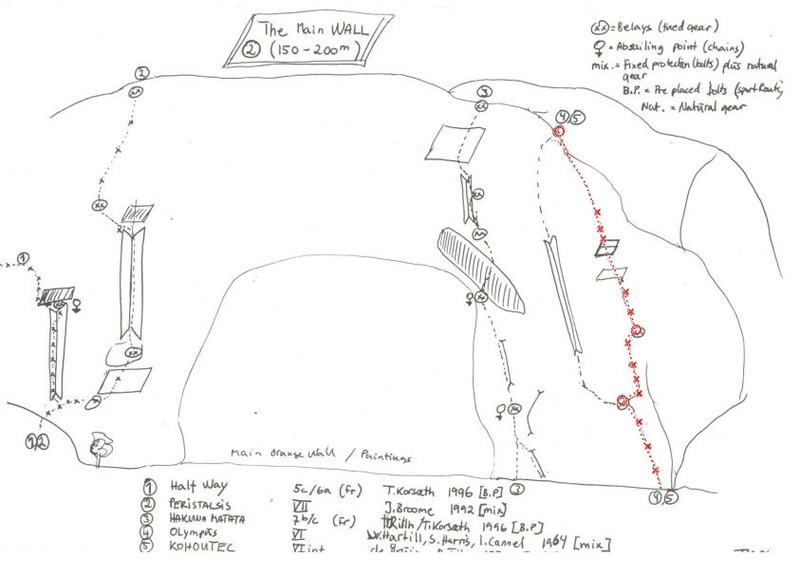 The Main WALL
② (150-200m)
ⓧⓧ = Belays (fixed gear)
= Abseiling point (chains)
mix. = Fixed protection (bolts) plus natural
gear
B.P. = Pre placed bolts (sport Route)
Nat. = Natural gear
②
③
④,⑤
①
①,②
Main Orange Wall / Paintings
③
④,⑤
① Half Way 5c/6a (fr) T. Korsath 1996 [B.P]
② PERISTALSIS VII J. Broome 1992 [mix]
③ HAKUNA MATATA 7b/c (fr) T. Korsath 1996 [B.P]
④ Olympus VI Hartill, S. Harris, I. Cannel 1964 [mix]
⑤ KOHOUTEC VI int